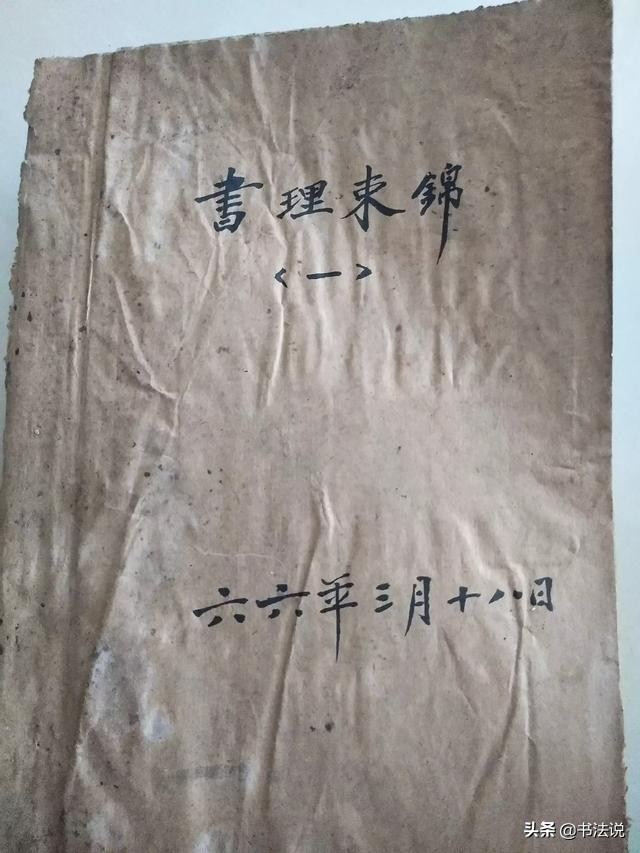 書理束錦
<一>
六六年三月十八日
头条 @书法说